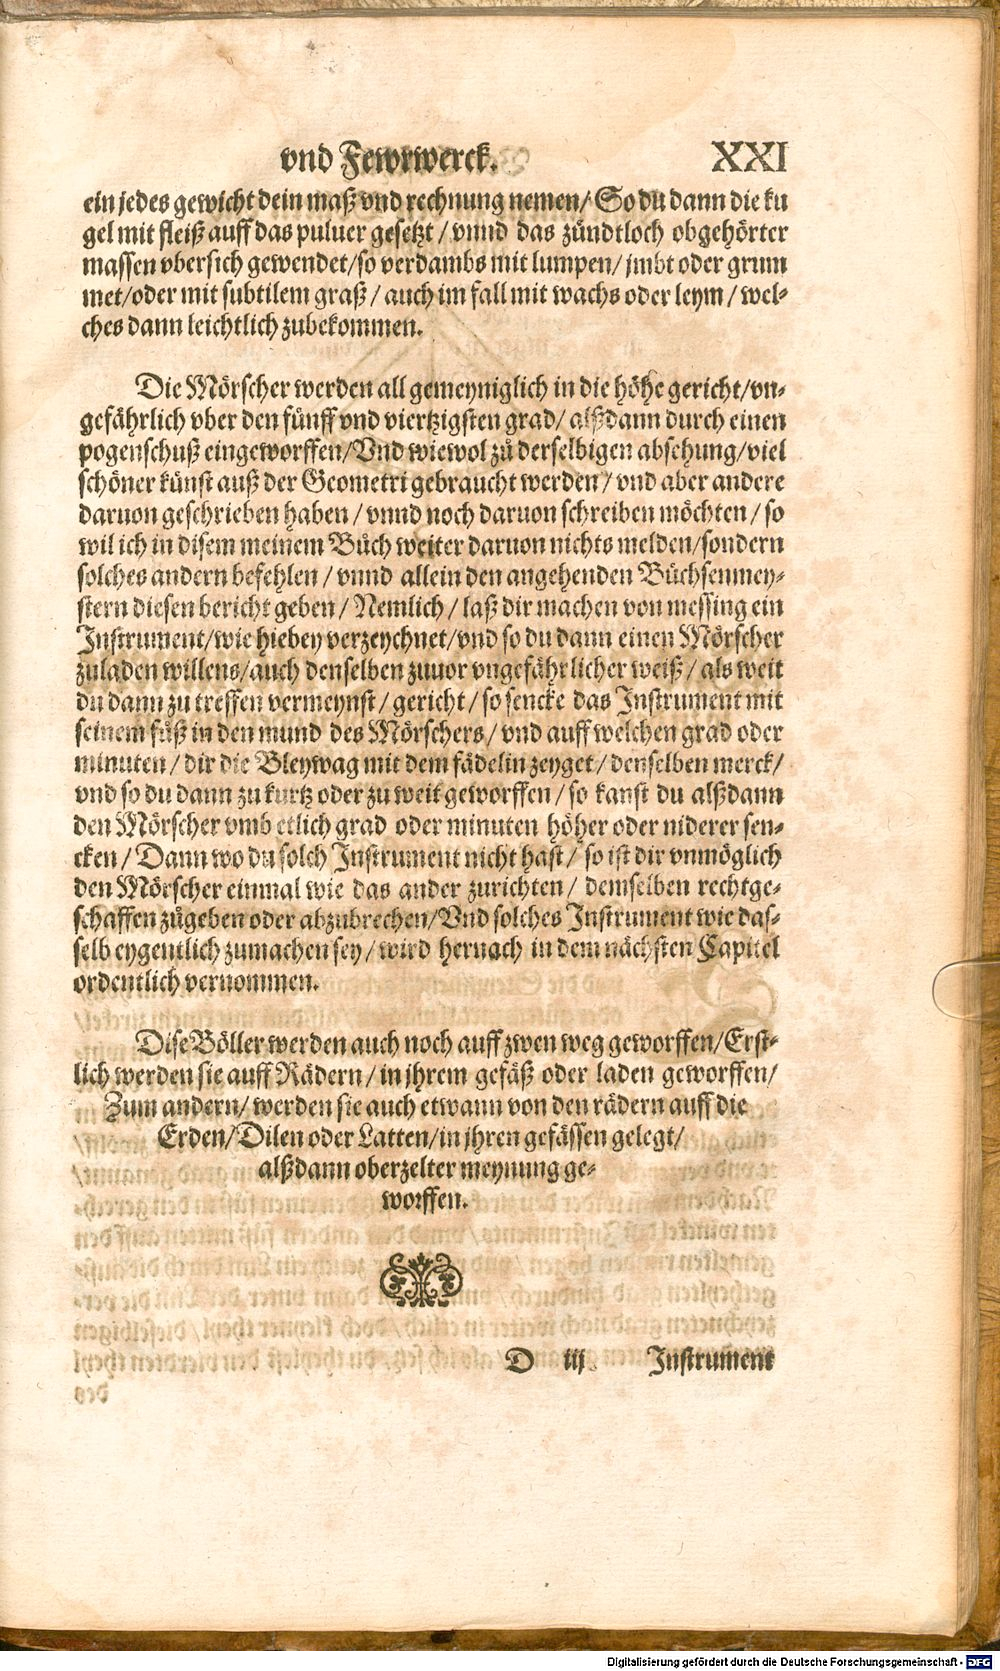 vnd Fewrwerck. XXI
ein jedes gewicht dein maß vnd rechnung nemen/ So du dann die ku
gel mit fleiß auff das puluer gesetzt / vnnd das zündtloch obgehörter
massen vbersich gewendet/so verdambs mit lumpen/ jmbt oder grum
met/oder mit subtilem graß / auch im fall mit wachs oder leym / wel-
ches dann leichtlich zubekommen.
Die Mörscher werden all gemeyniglich in die höhe gericht/vn-
gefährlich vber den fünff vnd viertzigsten grad/ alßdann durch einen
pogenschuß eingeworffen/Vnd wiewol zů derselbigen absehung/viel
schöner künst auß der Geometri gebraucht werden / vnd aber andere
daruon geschrieben haben / vnnd noch daruon schreiben möchten / so
wil ich in disem meinem Bůch weiter daruon nichts melden/sondern
solches andern befehlen / vnnd allein den angehenden Büchsenmey-
stern diesen bericht geben / Nemlich / laß dir machen von messing ein
Instrument/wie hiebey verzeychnet/vnd so du dann einen Mörscher
zuladen willens/auch denselben zuuor vngefährlicher weiß / als weit
du dann zu treffen vermeynst / gericht / so sencke das Instrument mit
seinem fůß in den mund des Mörschers / vnd auff welchen grad oder
minuten / dir die Bleywag mit dem fädelin zeyget / denselben merck/
vnd so du dann zu kurtz oder zu weit geworffen / so kanst du alßdann
den Mörscher vmb etlich grad oder minuten höher oder niderer sen-
cken / Dann wo du solch Instrument nicht hast / so ist dir vnmöglich
den Mörscher einmal wie das ander zurichten / demselben rechtge-
schaffen zůgeben oder abzubrechen/Vnd solches Instrument wie das-
selb eygentlich zumachen sey / wird hernach in dem nächsten Capitel
ordentlich vernommen.
Dise Böller werden auch noch auff zwen weg geworffen/Erst-
lich werden sie auff Rädern / in jhrem gefäß oder laden geworffen/
Zum andern/ werden sie auch etwann von den rädern auff die
Erden/Dilen oder Latten/in jhren gefässen gelegt/
alßdann oberzelter meynung ge-
worffen.
D iij Instrument
Digitalisierung gefördert durch die Deutsche Forschungsgemeinschaft - DFG